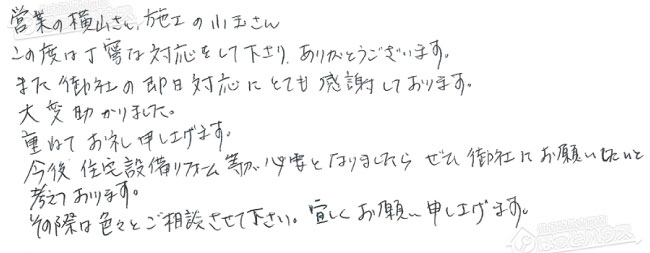 営業の横山さん、施工の小玉さん
この度は丁寧な対応をして下さり、ありがとうございます。
また御社の即日対応にとても感謝しております。
大変助かりました。
重ねてお礼申し上げます。
今後住宅設備リフォーム等が必要となりましたら ぜひ御社にお願いしたいと
考えております。
その際は色々とご相談させて下さい。宜しくお願い申し上げます。